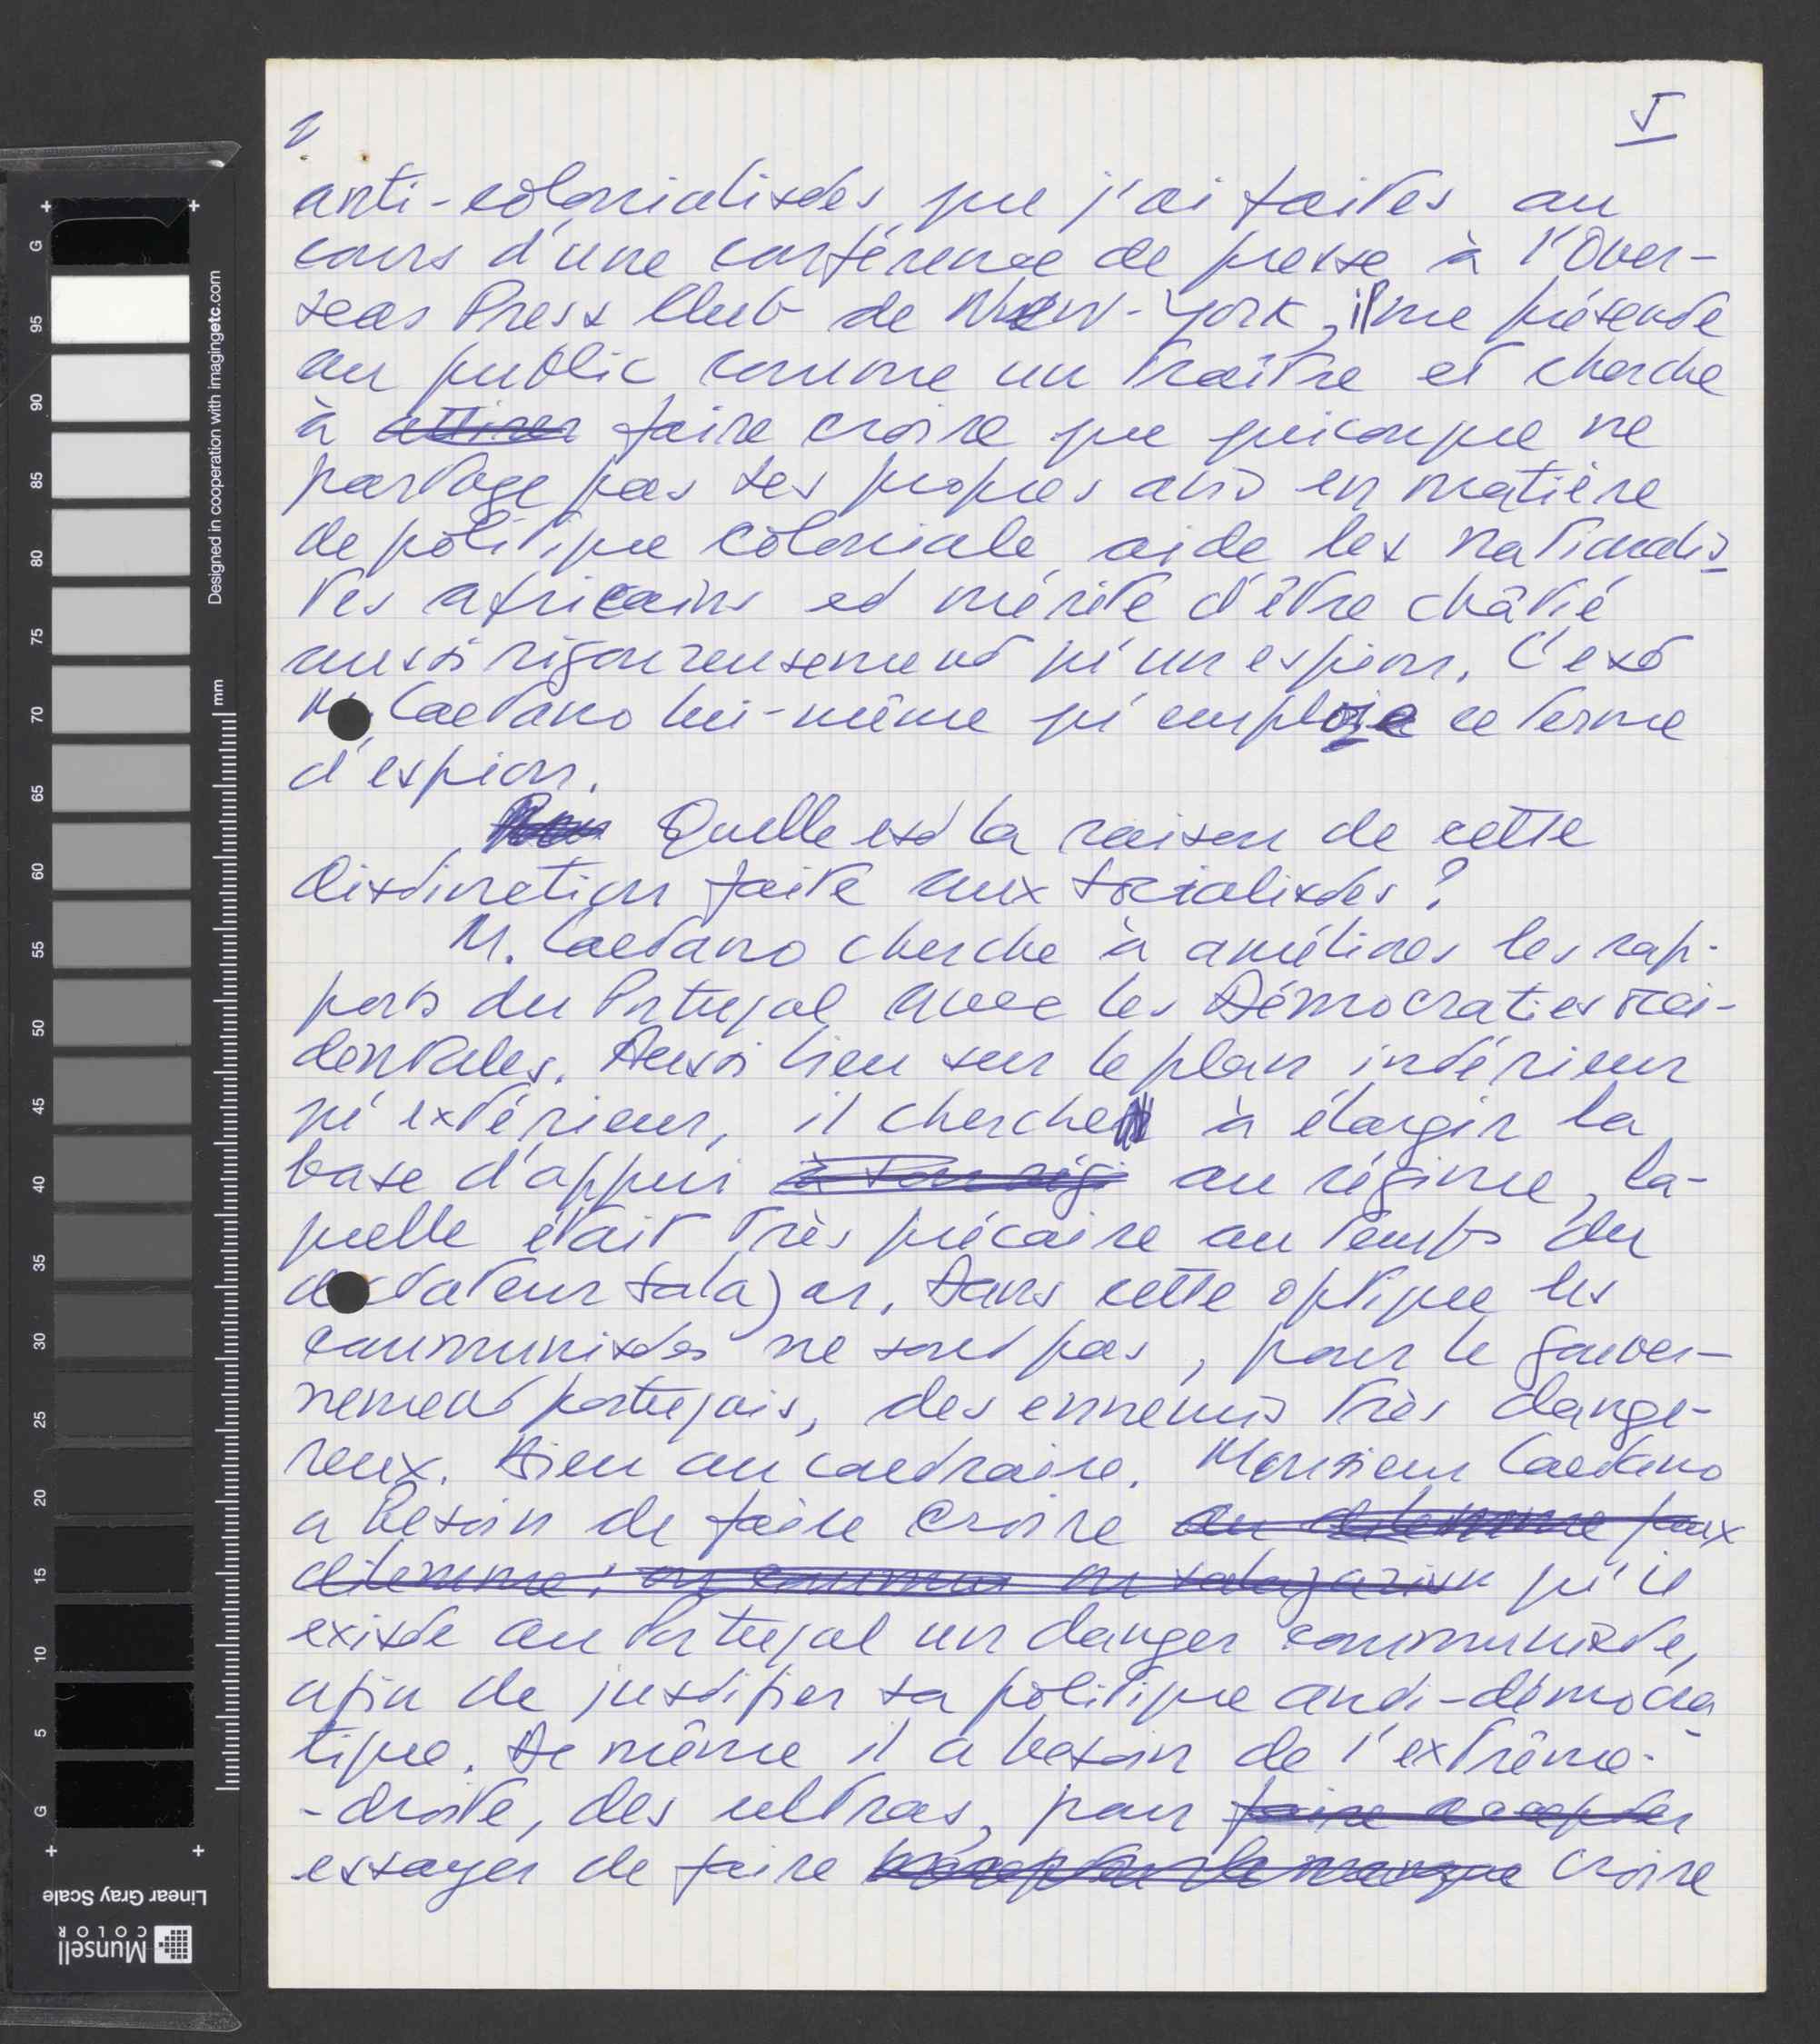 V
anti-colonialistes que j'ai faites au
cours d'une conférence de presse à l'Over-
seas Press Club de New-York, il me présente
au public comme un traître et cherche
à attirer faire croire que quiconque ne
partage pas ses propres avis en matière
de politique coloniale aide les nationalis
tes africains et mérite d'être châtié
aussi rigoureusement qu'un espion. C'est
M. Caetano lui-même qui emploie ce terme
d'espion.
Quelle est la raison de cette
distinction faite aux socialistes ?
M. Caetano cherche à améliorer les rap-
ports du Portugal avec les Démocraties occi-
dentales. Aussi bien sur le plan intérieur
qu'extérieur, il cherche à élargir la
base d'appui à son régi au régime, la-
quelle était très précaire au temps du
dictateur Salazar. Dans cette optique les
communistes ne sont pas, pour le gouver-
nement portugais, des ennemis très dange-
reux. Bien au contraire. Monsieur Caetano
a besoin de faire croire au dilemme faux
dilemme: ou commu ou salazarism qu'il
existe au Portugal un danger communiste,
afin de justifier sa politique anti-démocra
tique. De même il a besoin de l'extrême-
-droite, des ultras, pour faire accepter
essayer de faire croire
Designed in cooperation with imagingetc.com
mm
G
95
90
85
80
75
70
65
60
55
50
45
40
35
30
25
20
15
10
5
G
Linear Gray Scale
Munsell
COLOR